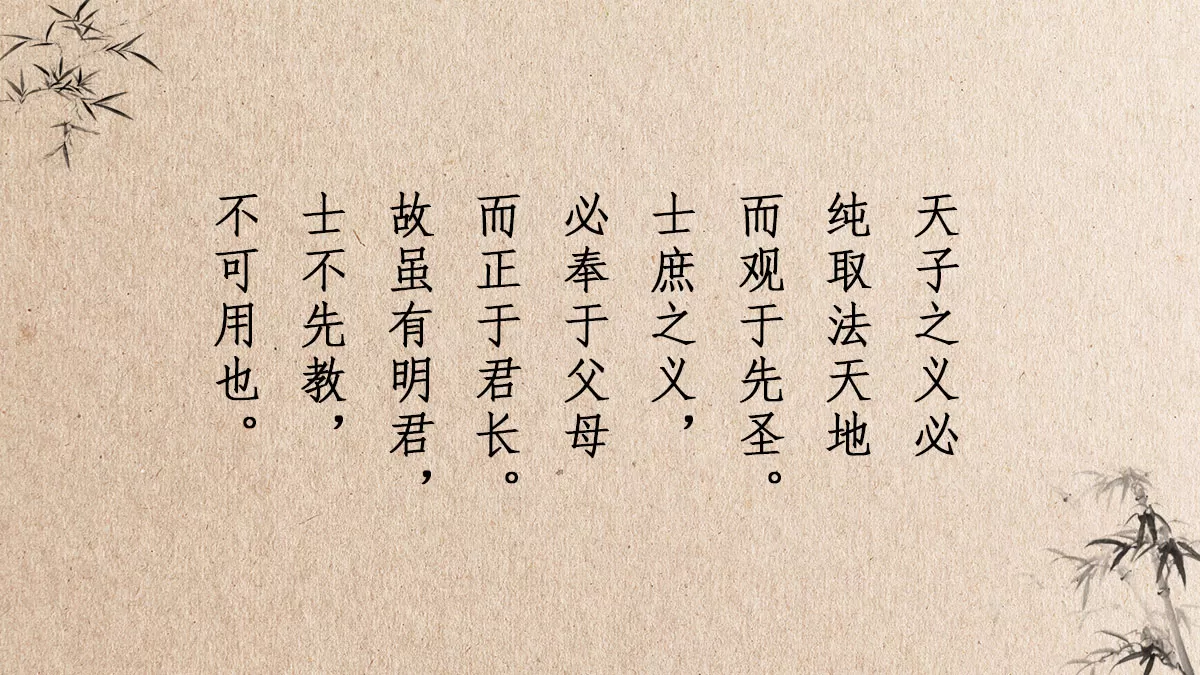 天子之义必
纯取法天地
而观于先圣。
士庶之义，
必奉于父母
而正于君长。
故虽有明君，
士不先教，
不可用也。